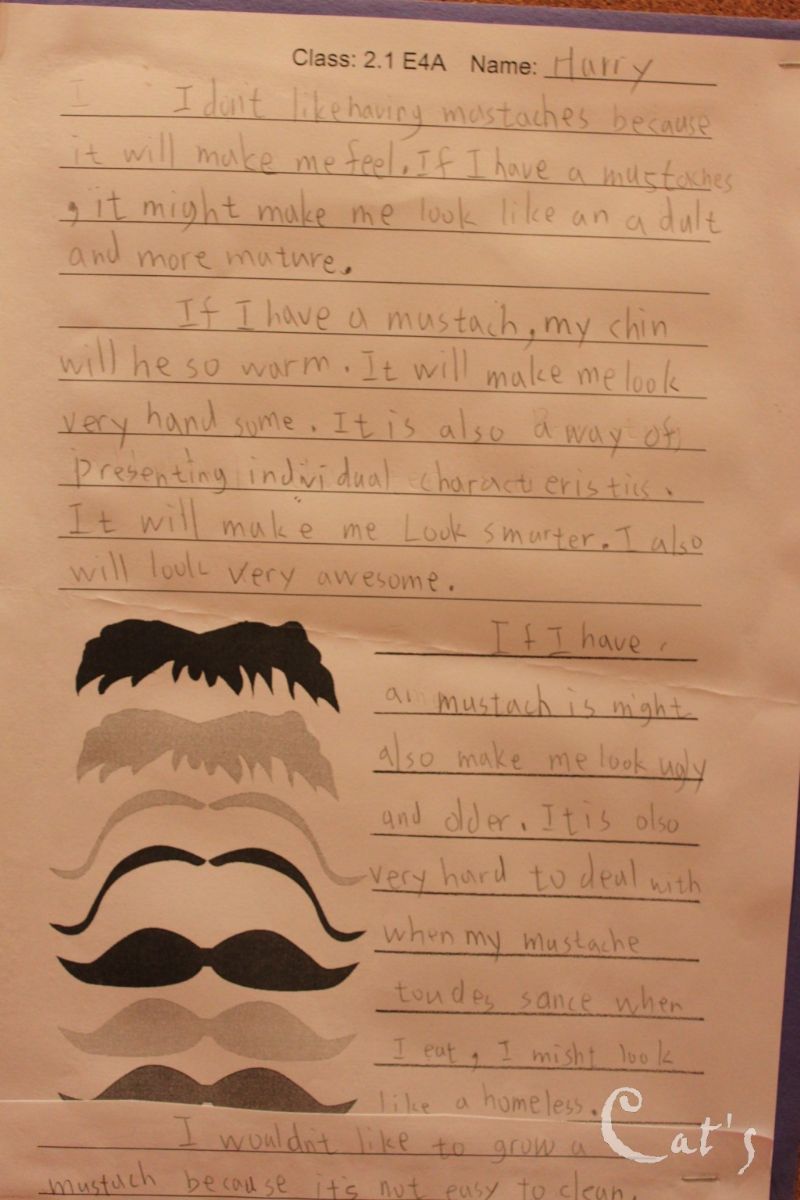 Class: 2.1 E4A Name: Harry
I I don't like having mustaches because
it will make me feel. If I have a mustaches
, it might make me look like an adult
and more mature.
If I have a mustach, my chin
will be so warm. It will make me look
very hand some. It is also a way of
presenting individual characteristics.
It will make me Look smarter. I also
will look very awesome.
If I have
a mustach is might
also make me look ugly
and older. It is also
very hard to deal with
when my mustache
toudes sance when
I eat, I might look
like a homeless.
I wouldn't like to grow a
mustach because it's not easy to clean.
Cat's